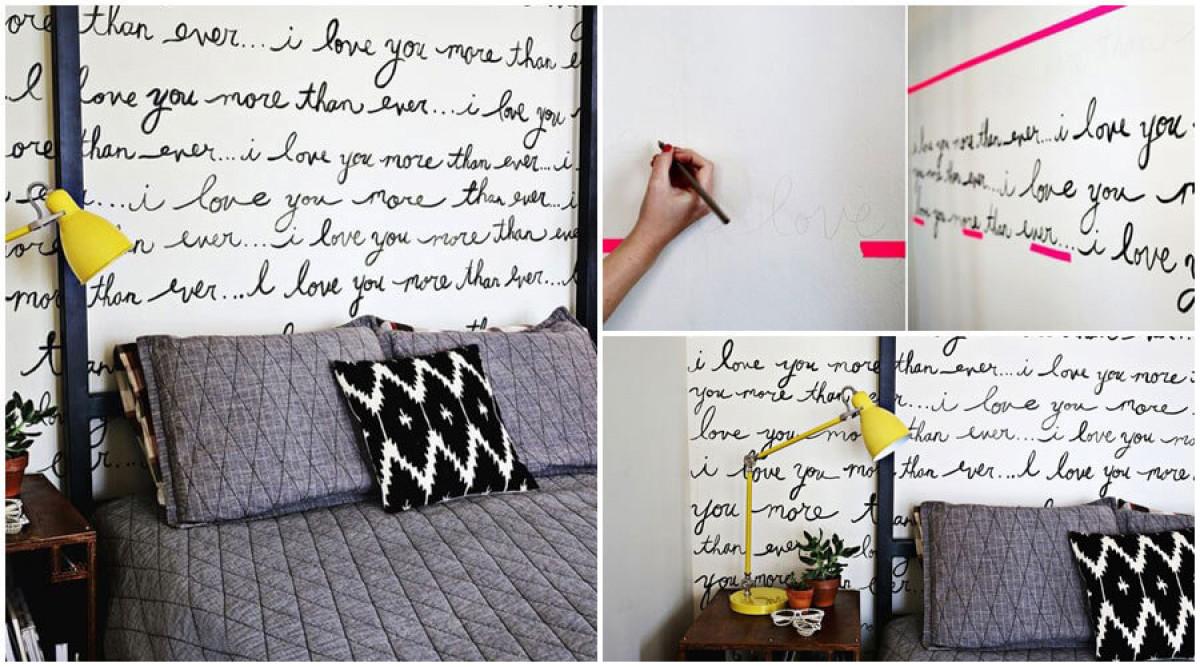 ore than ever...i love you more than e
l love you more than ever...i love you
ore than ever...i love you more than ever...i
....i love you more than ever...i
ore than ever...i love you more than eve
more than ever...l love you more than ever...i
than
love
i love you more than ever...i love you
ever...i love you m
love you more than ever...i love y
i love you more than ever...i love you more
you more than ever...i love you more
love you mo than ever...i love you mo
i love you mo than ever...l love you more
you more than
than ever
you more ever